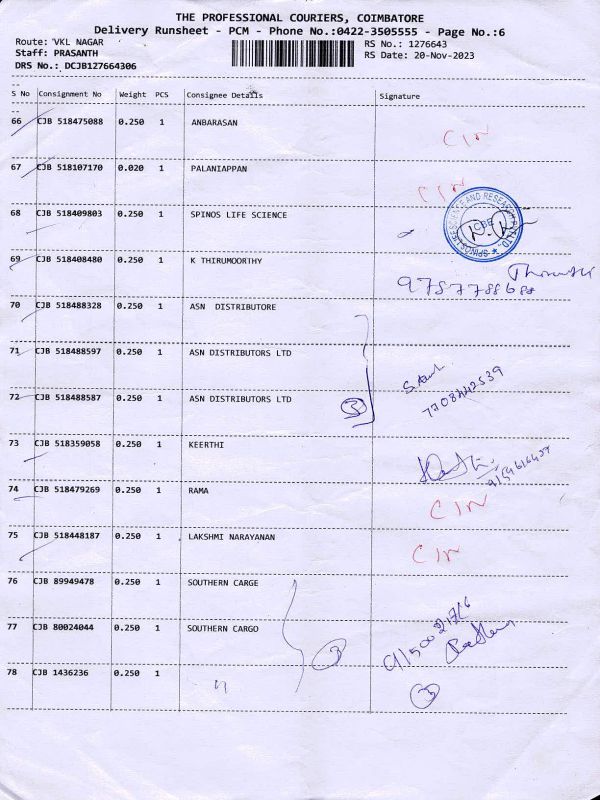 THE PROFESSIONAL COURIERS, COIMBATORE
Delivery Runsheet - PCM - Phone No.:0422-3505555 - Page No.:6
Route: VKL NAGAR RS No.: 1276643
Staff: PRASANTH RS Date: 20-Nov-2023
DRS No.: DCJB127664306
S No Consignment No Weight PCS Consignee Details Signature
66 CJB 518475088 0.250 1 ANBARASAN CIN
67 CJB 518107170 0.020 1 PALANIAPPAN CIN
68 CJB 518409803 0.250 1 SPINOS LIFE SCIENCE
SPINOS LIFE SCIENCE AND RESEARCH PVT LTD. CBE
69 CJB 518408480 0.250 1 K THIRUMOORTHY
70 CJB 518488328 0.250 1 ASN DISTRIBUTORE
71 CJB 518488597 0.250 1 ASN DISTRIBUTORS LTD
72 CJB 518488587 0.250 1 ASN DISTRIBUTORS LTD 3 7708442539
73 CJB 518359058 0.250 1 KEERTHI
74 CJB 518479269 0.250 1 RAMA CIN
75 CJB 518448187 0.250 1 LAKSHMI NARAYANAN CIN
76 CJB 89949478 0.250 1 SOUTHERN CARGE
77 CJB 80024044 0.250 1 SOUTHERN CARGO 3
78 CJB 1436236 0.250 1 " 3